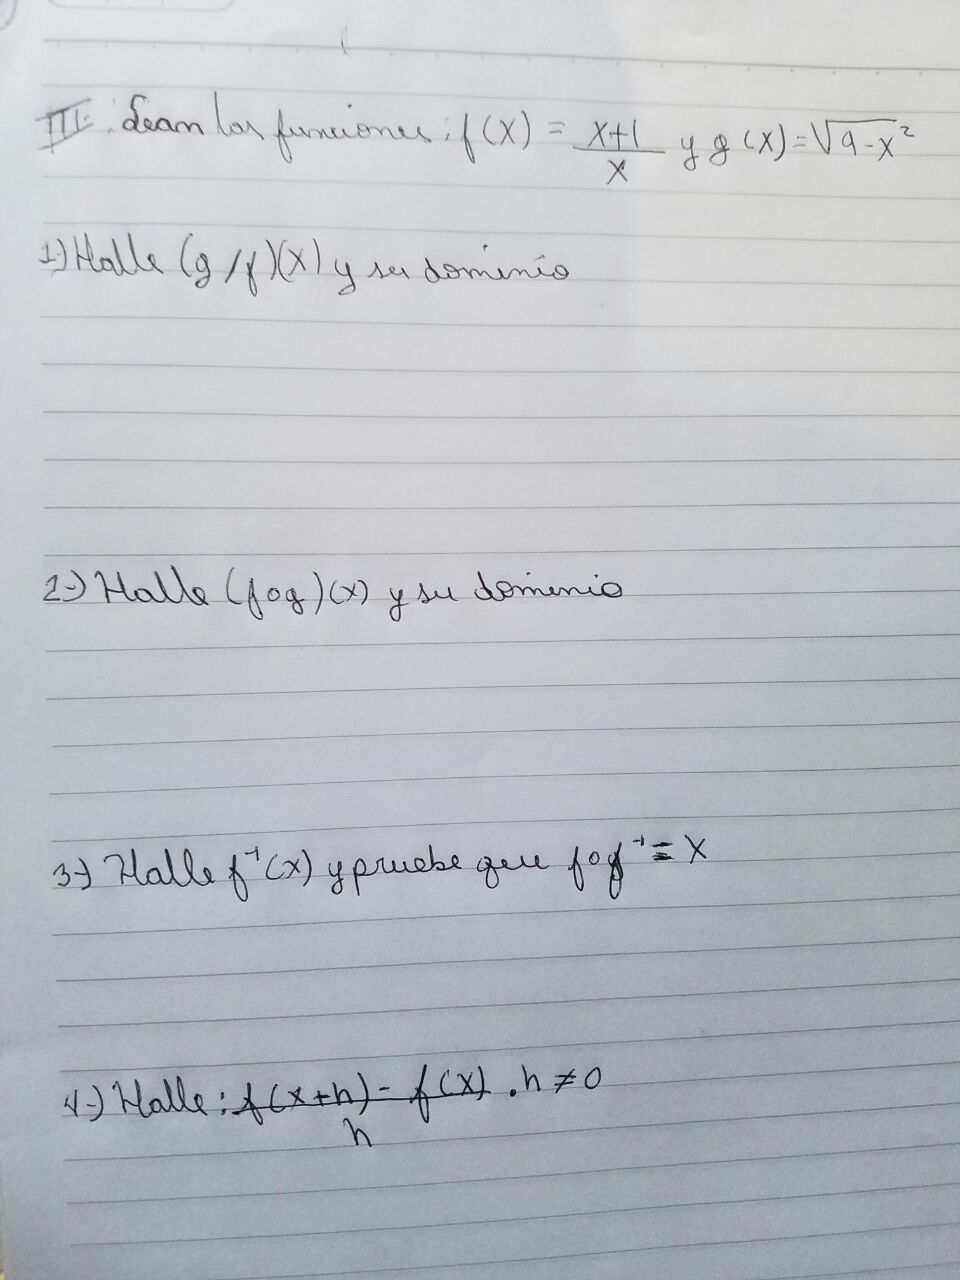 III. Sean las funciones: f(x) = x+1/x y g(x) = √9-x²
1-) Halle (g/f)(x) y su dominio
2-) Halle (fog)(x) y su dominio
3-) Halle f⁻¹(x) y pruebe que fof⁻¹ = x
4-) Halle: f(x+h) - f(x)/h . h ≠ 0